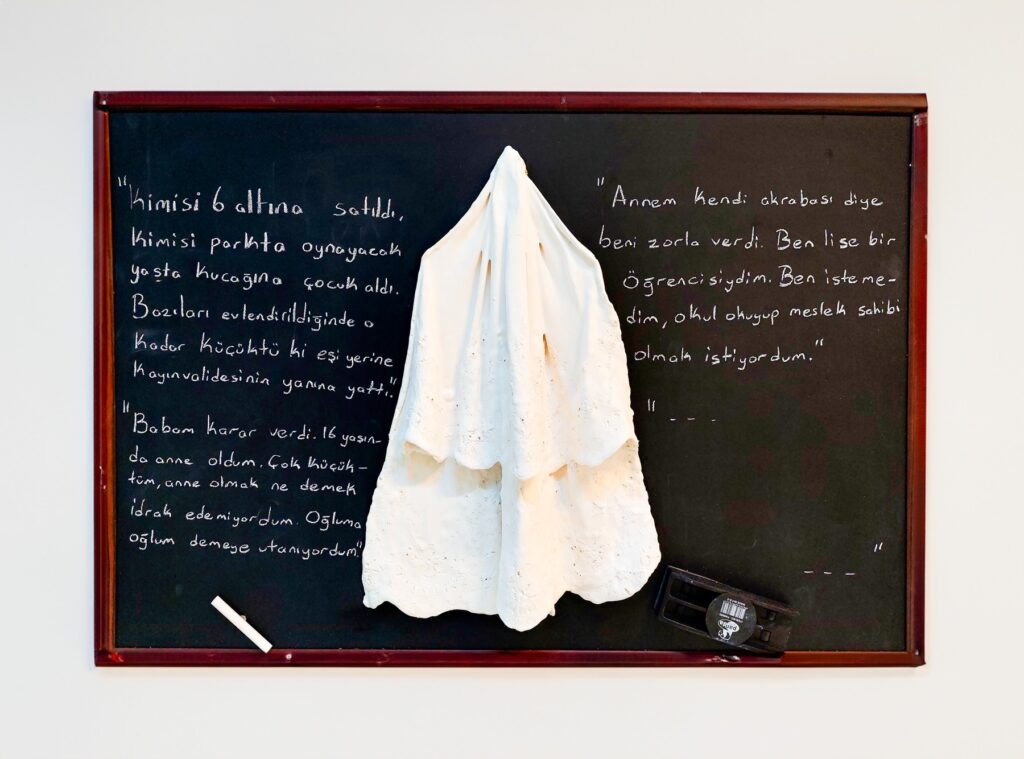 "Kimisi 6 altına satıldı,
kimisi parkta oynayacak
yaşta kucağına çocuk aldı.
Bazıları evlendirildiğinde o
kadar küçüktü ki eşi yerine
kayınvalidesinin yanına yattı."
"Babam karar verdi. 16 yaşın-
da anne oldum. Çok küçük-
tüm, anne olmak ne demek
idrak edemiyordum. Oğluma
oğlum demeye utanıyordum."
"Annem kendi akrabası diye
beni zorla verdi. Ben lise bir
öğrencisiydim. Ben isteme-
dim, okul okuyup meslek sahibi
olmak istiyordum."
" _ _ _
_ _ _ "